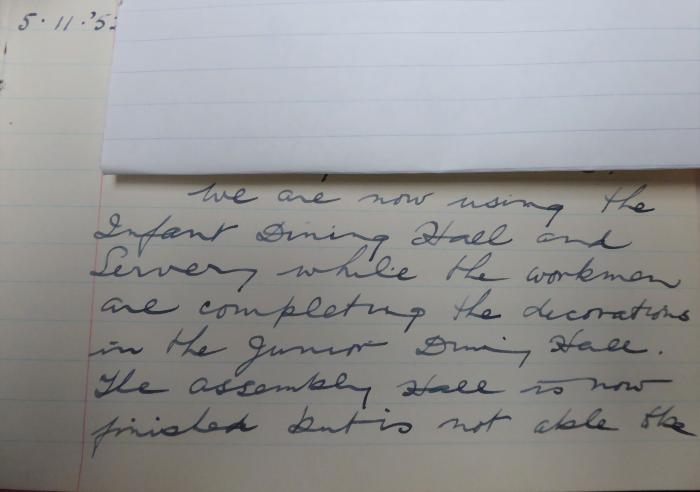 5.11.'5
We are now using the
Infant Dining Hall and
Servery while the workmen
are completing the decorations
in the Junior Dining Hall.
The Assembly Hall is now
finished but is not able to be